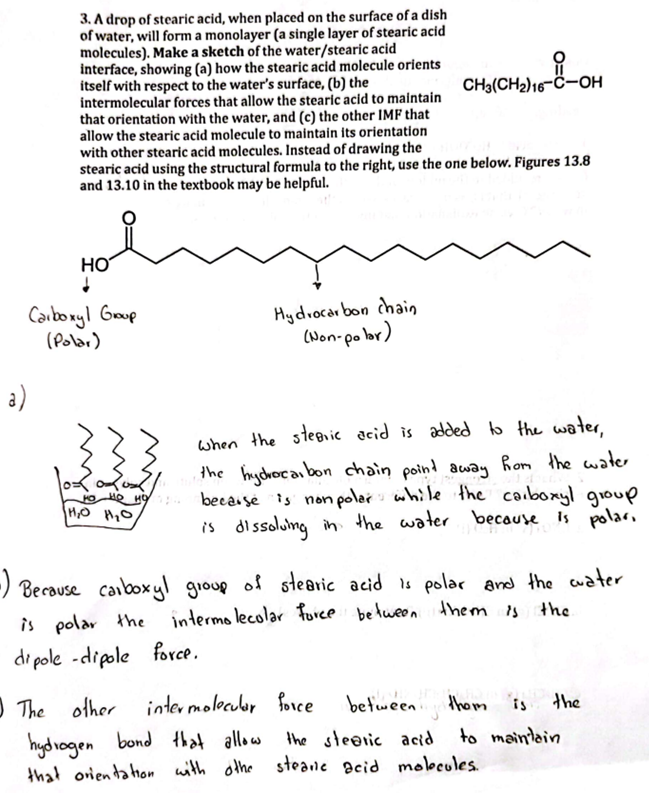 3. A drop of stearic acid, when placed on the surface of a dish
of water, will form a monolayer (a single layer of stearic acid
molecules). Make a sketch of the water/stearic acid
interface, showing (a) how the stearic acid molecule orients
itself with respect to the water's surface, (b) the
intermolecular forces that allow the stearic acid to maintain
that orientation with the water, and (c) the other IMF that
allow the stearic acid molecule to maintain its orientation
with other stearic acid molecules. Instead of drawing the
stearic acid using the structural formula to the right, use the one below. Figures 13.8
and 13.10 in the textbook may be helpful.
O
CH3(CH2)16-C-OH
O
HO
Carboxyl Group
(Polar)
Hydrocarbon chain
(Non-polar)
a)
O= O= O=
HO HO HO
H2O H2O
when the stearic acid is added to the water,
the hydrocarbon chain point away from the water
because is non polar while the carboxyl group
is dissolving in the water because is polar.
) Because carboxyl group of stearic acid is polar and the water
is polar the intermolecular force between them is the
dipole-dipole force.
) The other intermolecular force between them is the
hydrogen bond that allow the stearic acid to maintain
that orientation with othe stearic acid molecules.